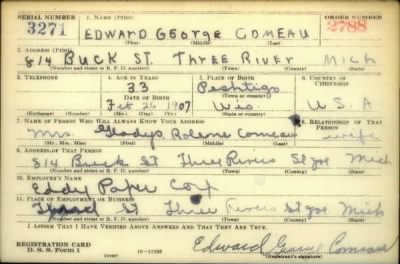 SERIAL NUMBER 1. NAME (Print) ORDER NUMBER
3271 EDWARD GEORGE COMEAU 2788
(First) (Middle) (Last)
2. ADDRESS (Print)
814 BUCK ST. THREE RIVER MICH
(Number and street or R. F. D. number) (Town) (County) (State)
3. TELEPHONE 4. AGE IN YEARS 5. PLACE OF BIRTH 6. COUNTRY OF CITIZENSHIP
33 Peshtigo
DATE OF BIRTH (Town or county)
Feb 26 1907 Wis U.S.A
(Exchange) (Number) (Mo.) (Day) (Yr.) (State or country)
7. NAME OF PERSON WHO WILL ALWAYS KNOW YOUR ADDRESS 8. RELATIONSHIP OF THAT PERSON
Mrs. Gladys Comeau wife
(Mr., Mrs., Miss) (First) (Middle) (Last)
9. ADDRESS OF THAT PERSON
814 Buck St Three Rivers St Joe Mich
(Number and street or R. F. D. number) (Town) (County) (State)
10. EMPLOYER'S NAME
Eddy Paper Corp
11. PLACE OF EMPLOYMENT OR BUSINESS
St Three Rivers St Joe Mich
(Number and street or R. F. D. number) (Town) (County) (State)
I AFFIRM THAT I HAVE VERIFIED ABOVE ANSWERS AND THAT THEY ARE TRUE.
REGISTRATION CARD
D. S. S. Form 1 Edward George Comeau
(Registrant's signature)